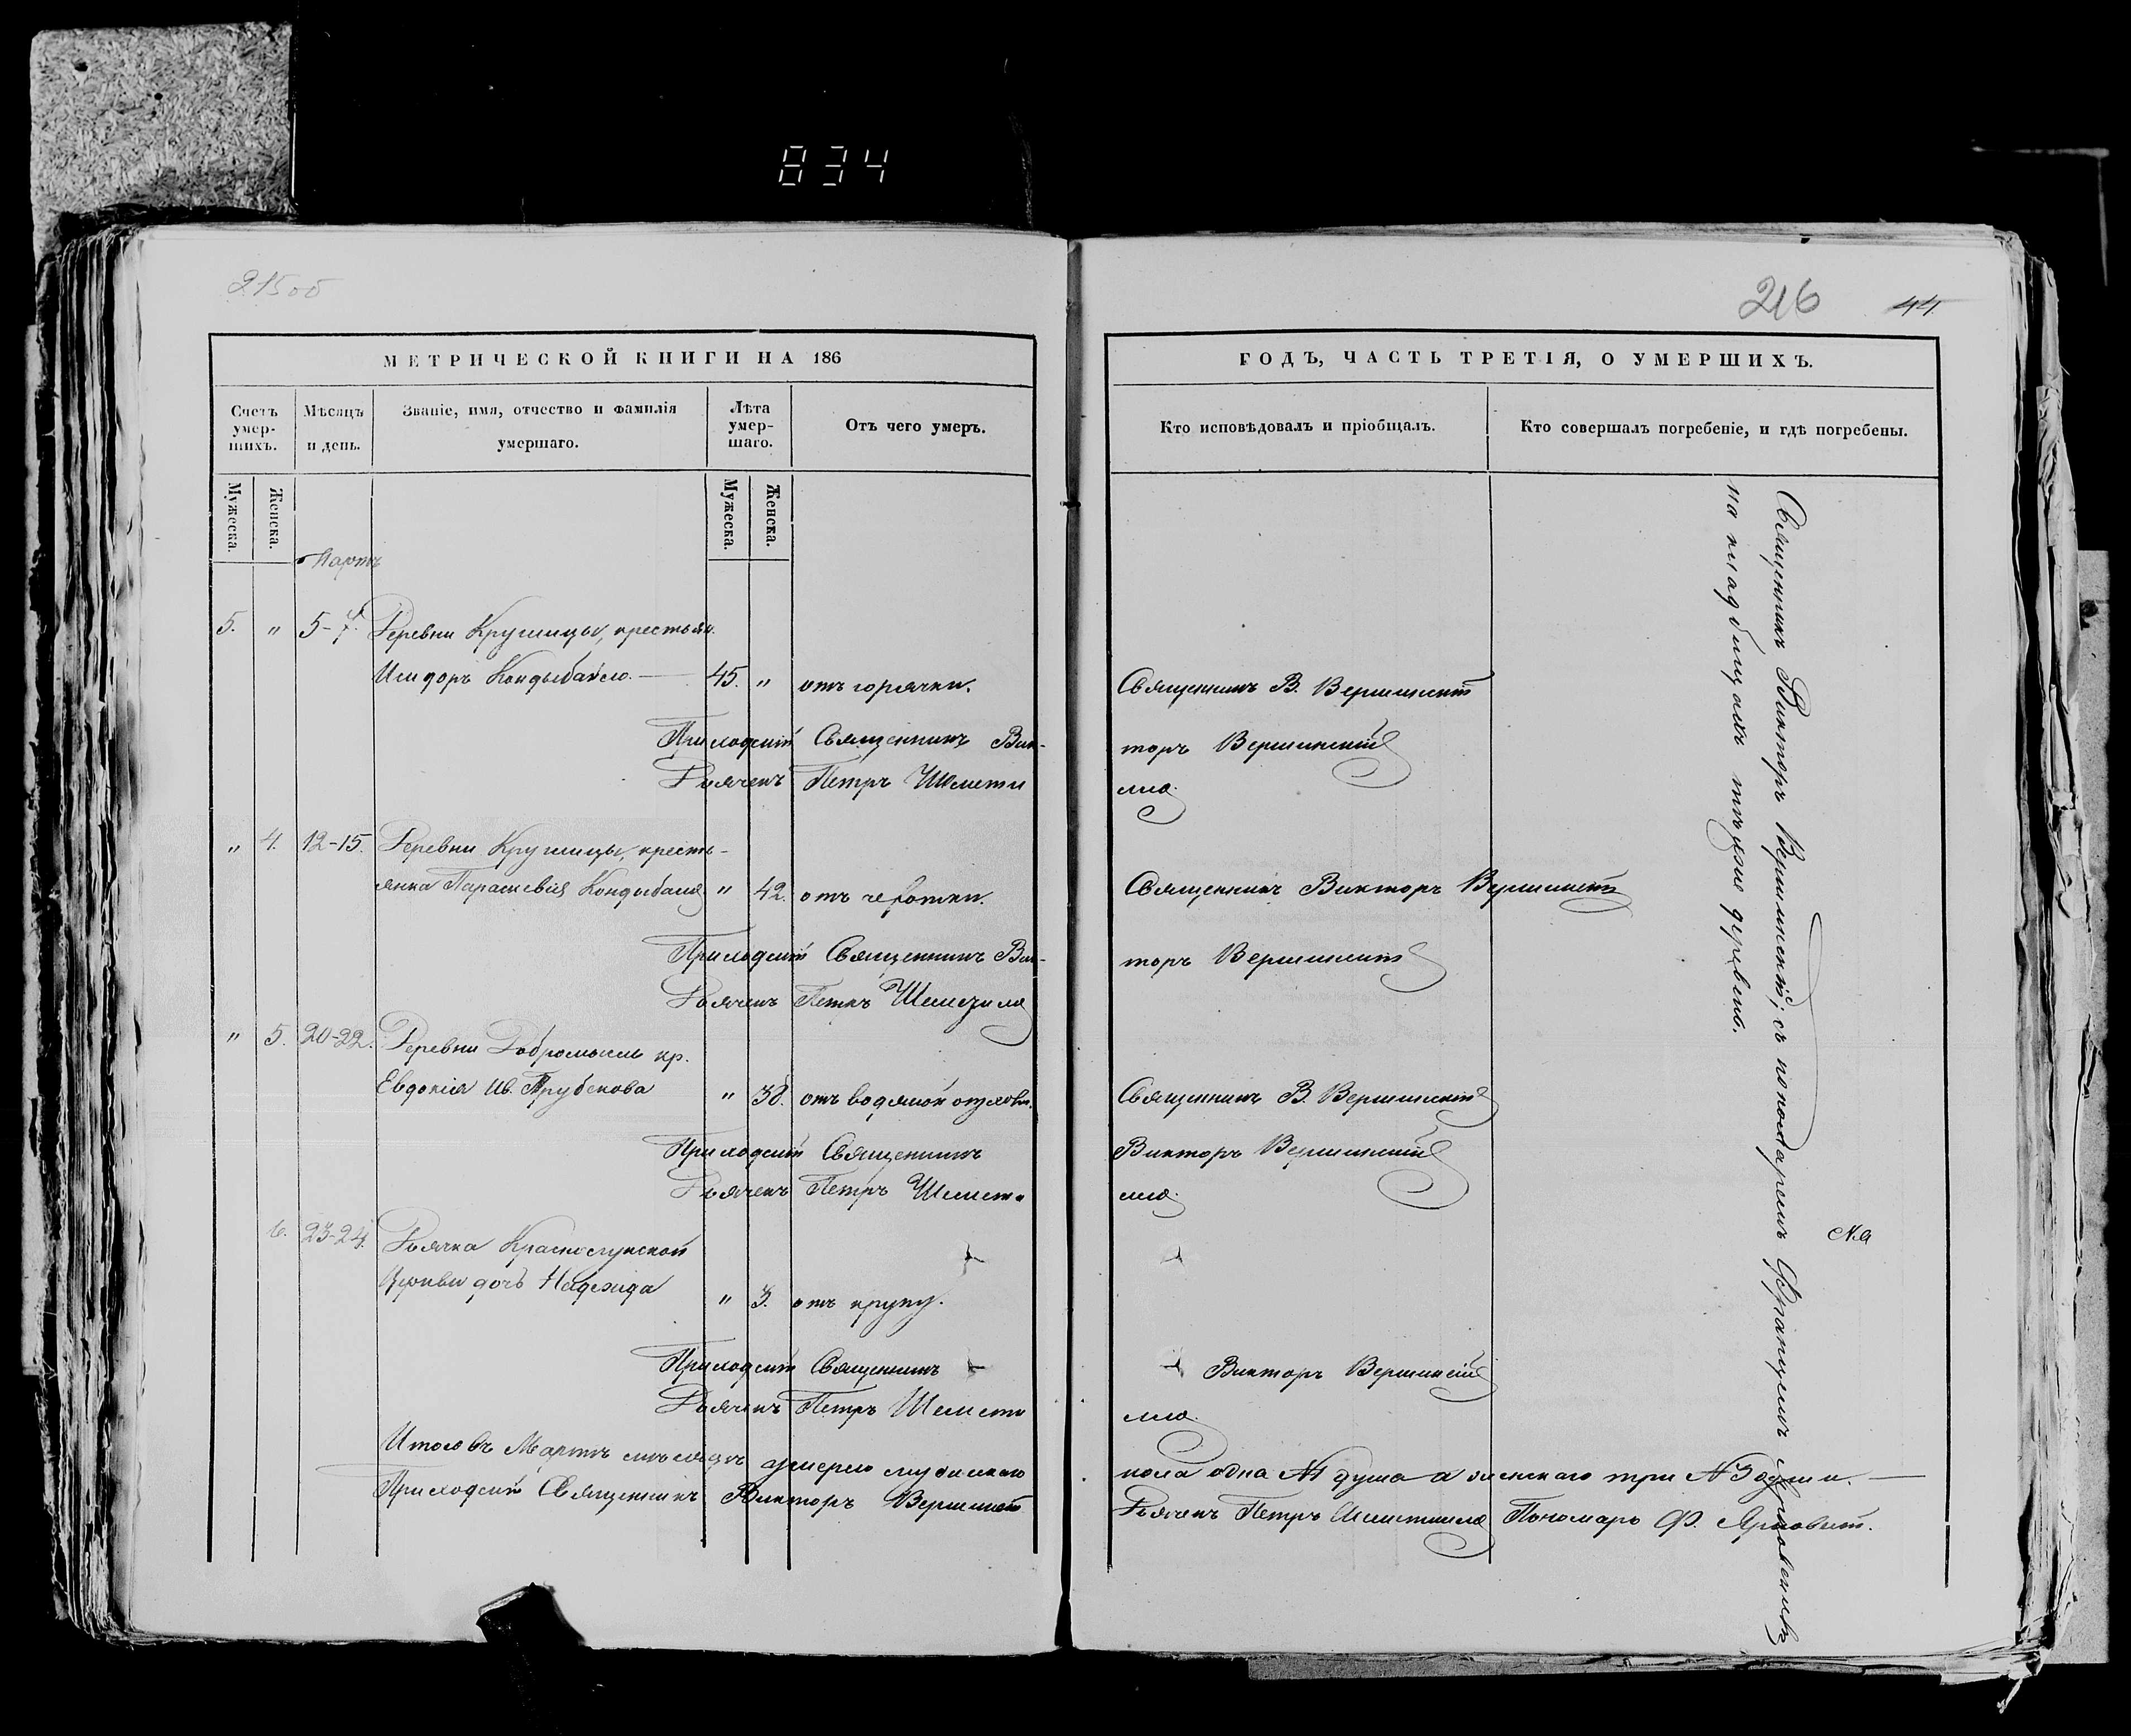 834
215об
216 44
МЕТРИЧЕСКОЙ КНИГИ НА 186
ГОДЪ, ЧАСТЬ ТРЕТІЯ, О УМЕРШИХЪ.
Счетъ умер-шихъ.
Мѣсяцъ и день.
Званіе, имя, отчество и фамилія умершаго.
Лѣта умер-шаго.
Отъ чего умеръ.
Кто исповѣдовалъ и пріобщалъ.
Кто совершалъ погребеніе, и гдѣ погребены.
Мужеска.
Женска.
Мужеска.
Женска.
Мартъ
5. " 5-7. Деревни Кругмицы, крестьян.
Исидоръ Кондыбайло. — 45. " отъ горячки. Священникъ В. Вершинскій
Приходскій Священникъ Вик-торъ Вершинскій
Дьячекъ Петръ Шемети
лло.
" 4. 12-15. Деревни Кругмицы, кресть-
янка Параскевія Кондыбайло " 42. отъ чахотки. Священникъ Викторъ Вершинскій
Приходскій Священникъ Вик-торъ Вершинскій
Дьячекъ Петръ
" 5. 20-22. Деревни Добромысль кр.
Евдокія Ив. Трубекова " 38. отъ водяной опухоли. Священникъ В. Вершинскій
Приходскій Священникъ Викторъ Вершинскій
Дьячекъ Петръ Шемети
лло.
6. 23-24. Дьячка Краснослуцкой
Церкви дочь Надежда " 3. отъ крупу.
Приходскій Священникъ Викторъ Вершинскій
Дьячекъ Петръ Шемети
лло.
Итого въ Мартѣ мѣсяцѣ умерло мужескаго пола одна №1 душа а женскаго три №3 души. —
Приходскій Священникъ Викторъ Вершинскій Дьячекъ Петръ Пономарь Ф.
Священникъ Викторъ Вершинскій, съ пономаремъ Францемъ
на кладбищахъ тѣхже деревень.